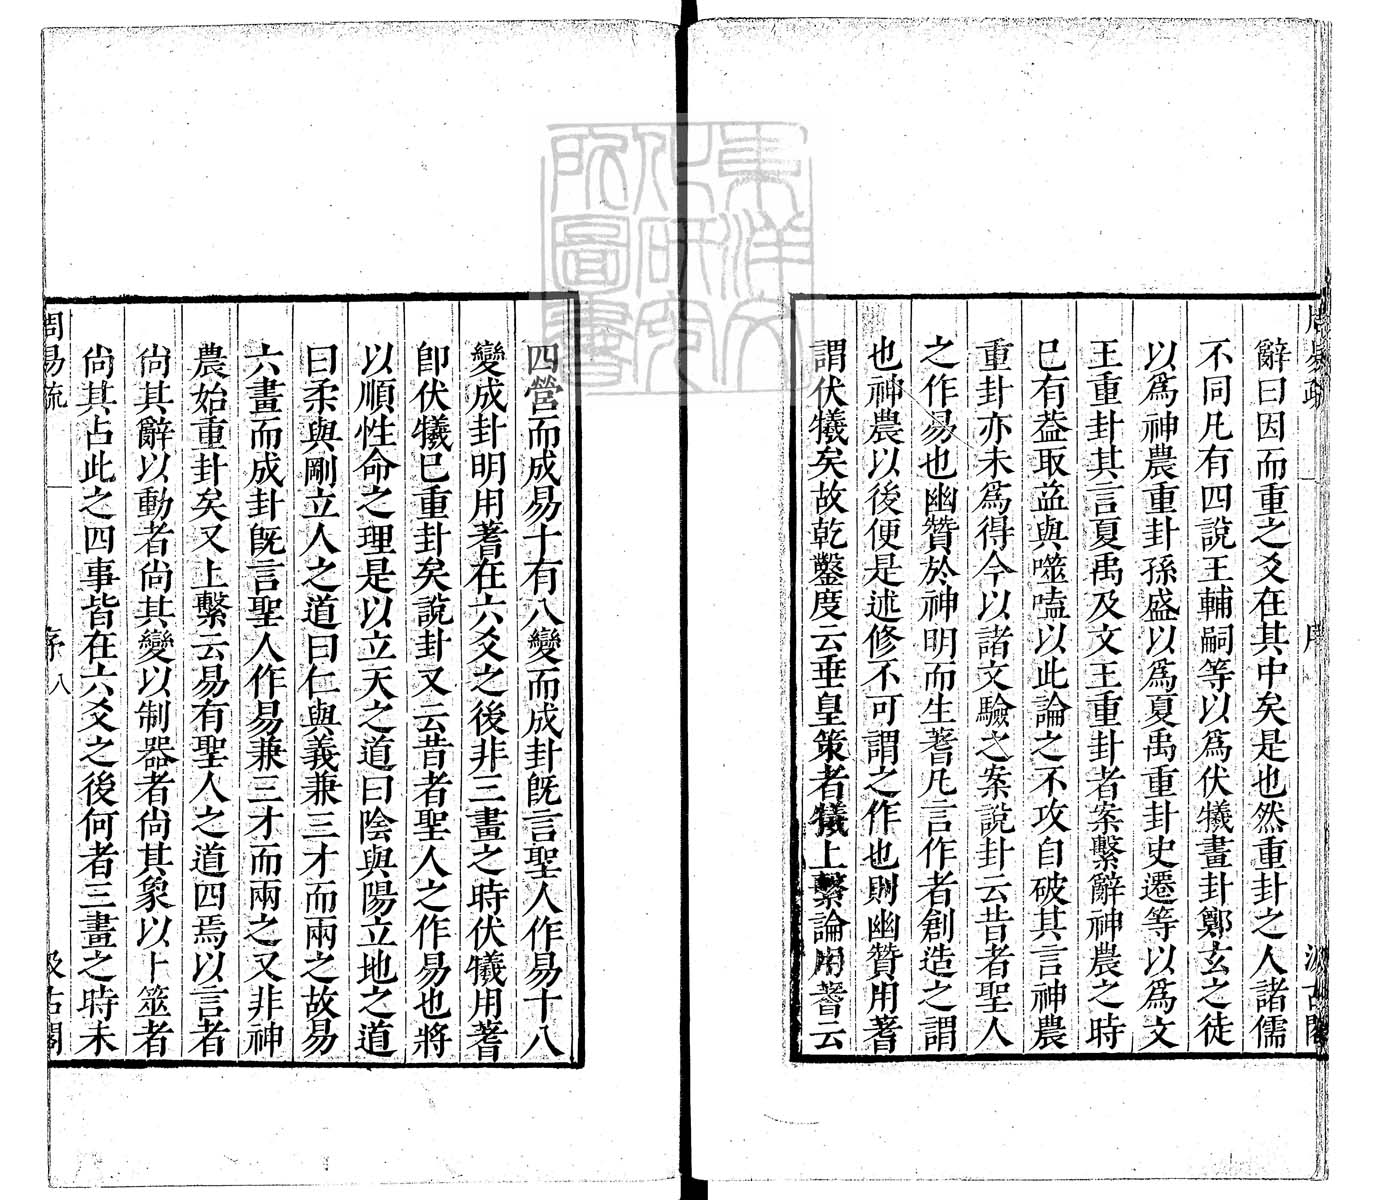 辭曰因而重之爻在其中矣是也然重卦之人諸儒
不同凡有四說王輔嗣等以爲伏犧畫卦鄭玄之徒
以爲神農重卦孫盛以爲夏禹重卦史遷等以爲文
王重卦其言夏禹及文王重卦者案繫辭神農之時
已有葢取益與噬嗑以此論之不攻自破其言神農
重卦亦未爲得今以諸文驗之案說卦云昔者聖人
之作易也幽贊於神明而生蓍凡言作者創造之謂
也神農以後便是述修不可謂之作也則幽贊用蓍
謂伏犧矣故乾鑿度云垂皇策者犧上繫論用蓍云
四營而成易十有八變而成卦旣言聖人作易十八
變成卦明用蓍在六爻之後非三畫之時伏犧用蓍
卽伏犧已重卦矣說卦又云昔者聖人之作易也將
以順性命之理是以立天之道曰陰與陽立地之道
曰柔與剛立人之道曰仁與義兼三才而兩之故易
六畫而成卦旣言聖人作易兼三才而兩之又非神
農始重卦矣又上繫云易有聖人之道四焉以言者
尙其辭以動者尙其變以制器者尙其象以卜筮者
尙其占此之四事皆在六爻之後何者三畫之時未
周易疏 序 八 汲古閣
東洋文化研究所圖書